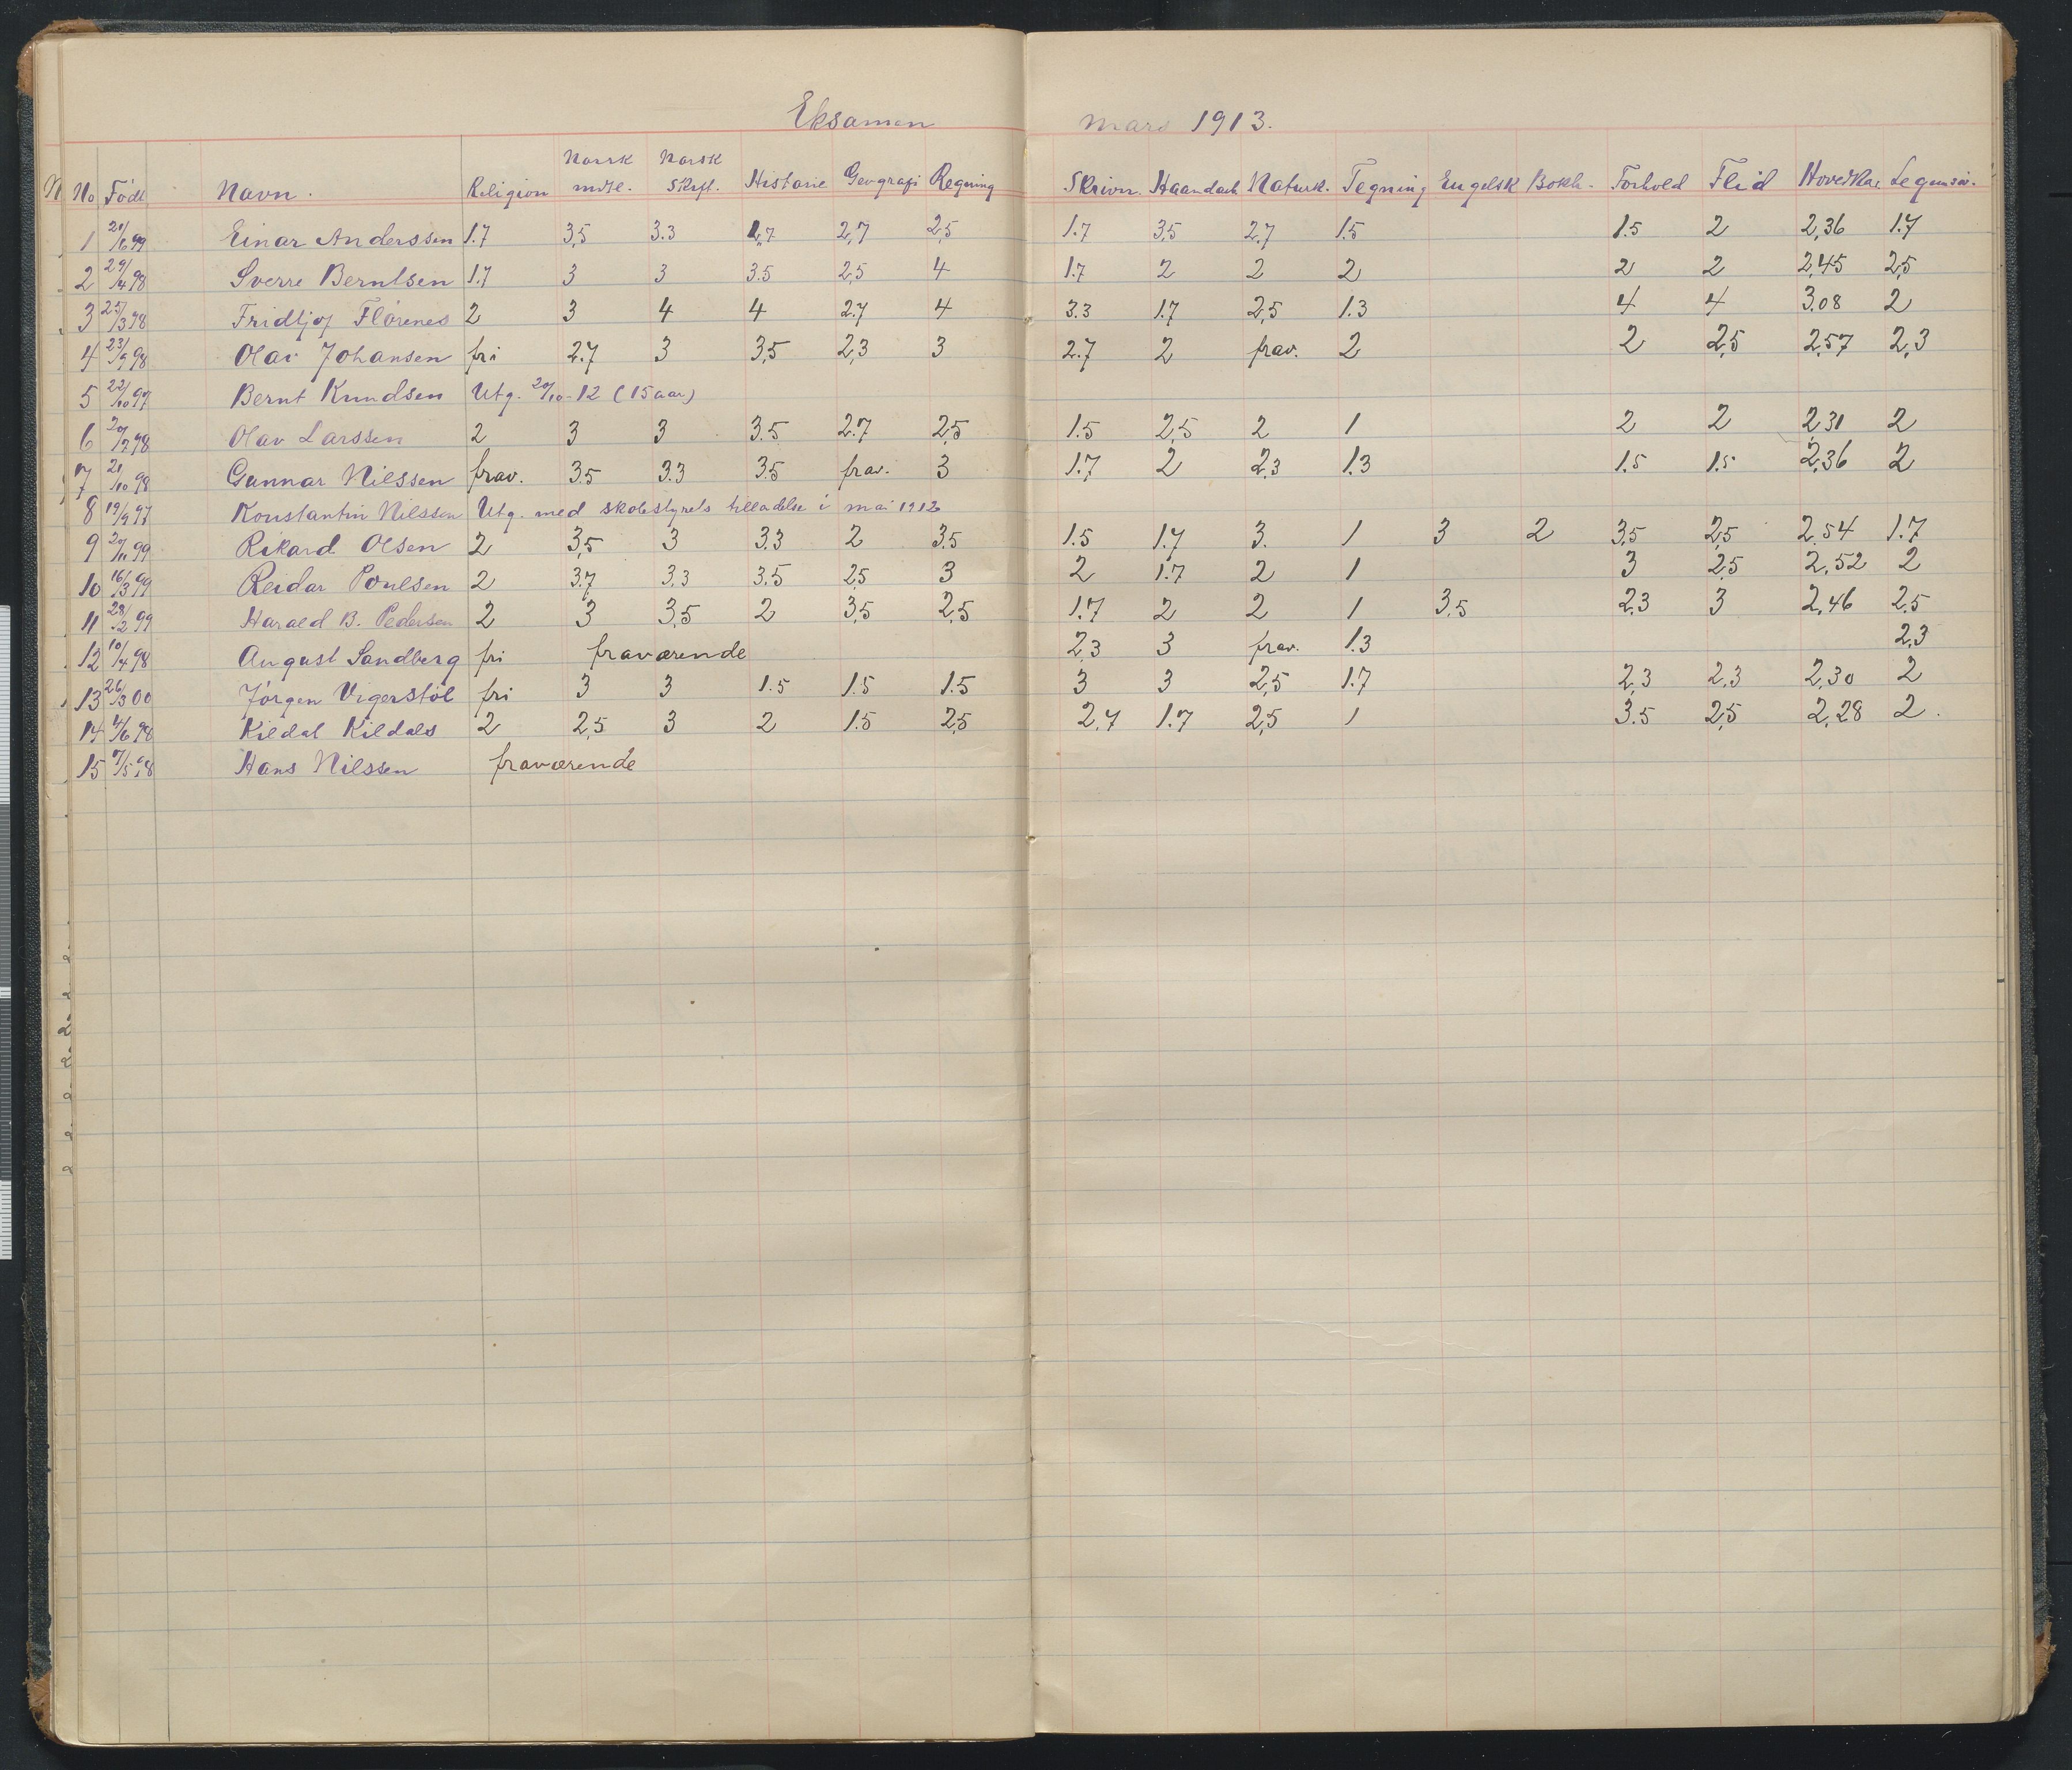 Eksamen mars 1913.
No Født Navn. Religion Norsk mdtl. Norsk Skrftl. Historie Geografi Regning Skrivn. Haandarb. Naturk. Tegning Engelsk Bokh. Forhold Flid Hovedkar. Legemsøv.
1 21/6 99 Einar Anderssen 1.7 3,5 3.3 1,7 2,7 2,5 1.7 3,5 2.7 1.5 1.5 2 2,36 1.7
2 29/4 98 Sverre Berntsen 1.7 3 3 3.5 2,5 4 1.7 2 2 2 2 2 2,45 2,5
3 25/3 98 Fridtjof Flørenes 2 3 4 4 2.7 4 3.3 1.7 2,5 1.3 4 4 3.08 2
4 23/9 98 Olav Johansen fri 2.7 3 3,5 2,3 3 2.7 2 frav. 2 2 2,5 2,57 2,3
5 22/10 97 Bernt Knudsen Utg. 20/10-12 (15 aar)
6 20/2 98 Olav Larssen 2 3 3 3.5 2.7 2,5 1.5 2,5 2 1 2 2 2,31 2
7 21/10 98 Gunnar Nilssen frav. 3.5 3.3 3.5 frav. 3 1.7 2 2,3 1.3 1.5 1.5 2,36 2
8 19/9 97 Konstantin Nilssen Utg. med skolestyrets tilladelse i mai 1912
9 20/11 99 Rikard Olsen 2 3,5 3 3.3 2 3.5 1.5 1.7 3. 1 3 2 3,5 2,5 2,54 1.7
10 16/3 99 Reidar Poulsen 2 3.7 3.3 3.5 2,5 3 2 1.7 2 1 3 2,5 2,52 2
11 28/2 99 Harald B. Pedersen 2 3 3,5 2 3,5 2,5 1.7 2 2 1 3,5 2,3 3 2,46 2,5
12 10/4 98 August Sandberg fri fraværende 2,3 3 frav. 1.3 2,3
13 26/3 00 Jørgen Vigerstøl fri 3 3 1.5 1.5 1.5 3 3 2,5 1.7 2,3 2,3 2,30 2
14 4/6 98 Kildal Kildals 2 2,5 3 2 1.5 2,5 2,7 1.7 2,5 1 3.5 2,5 2,28 2.
15 7/5 98 Hans Nilssen fraværende